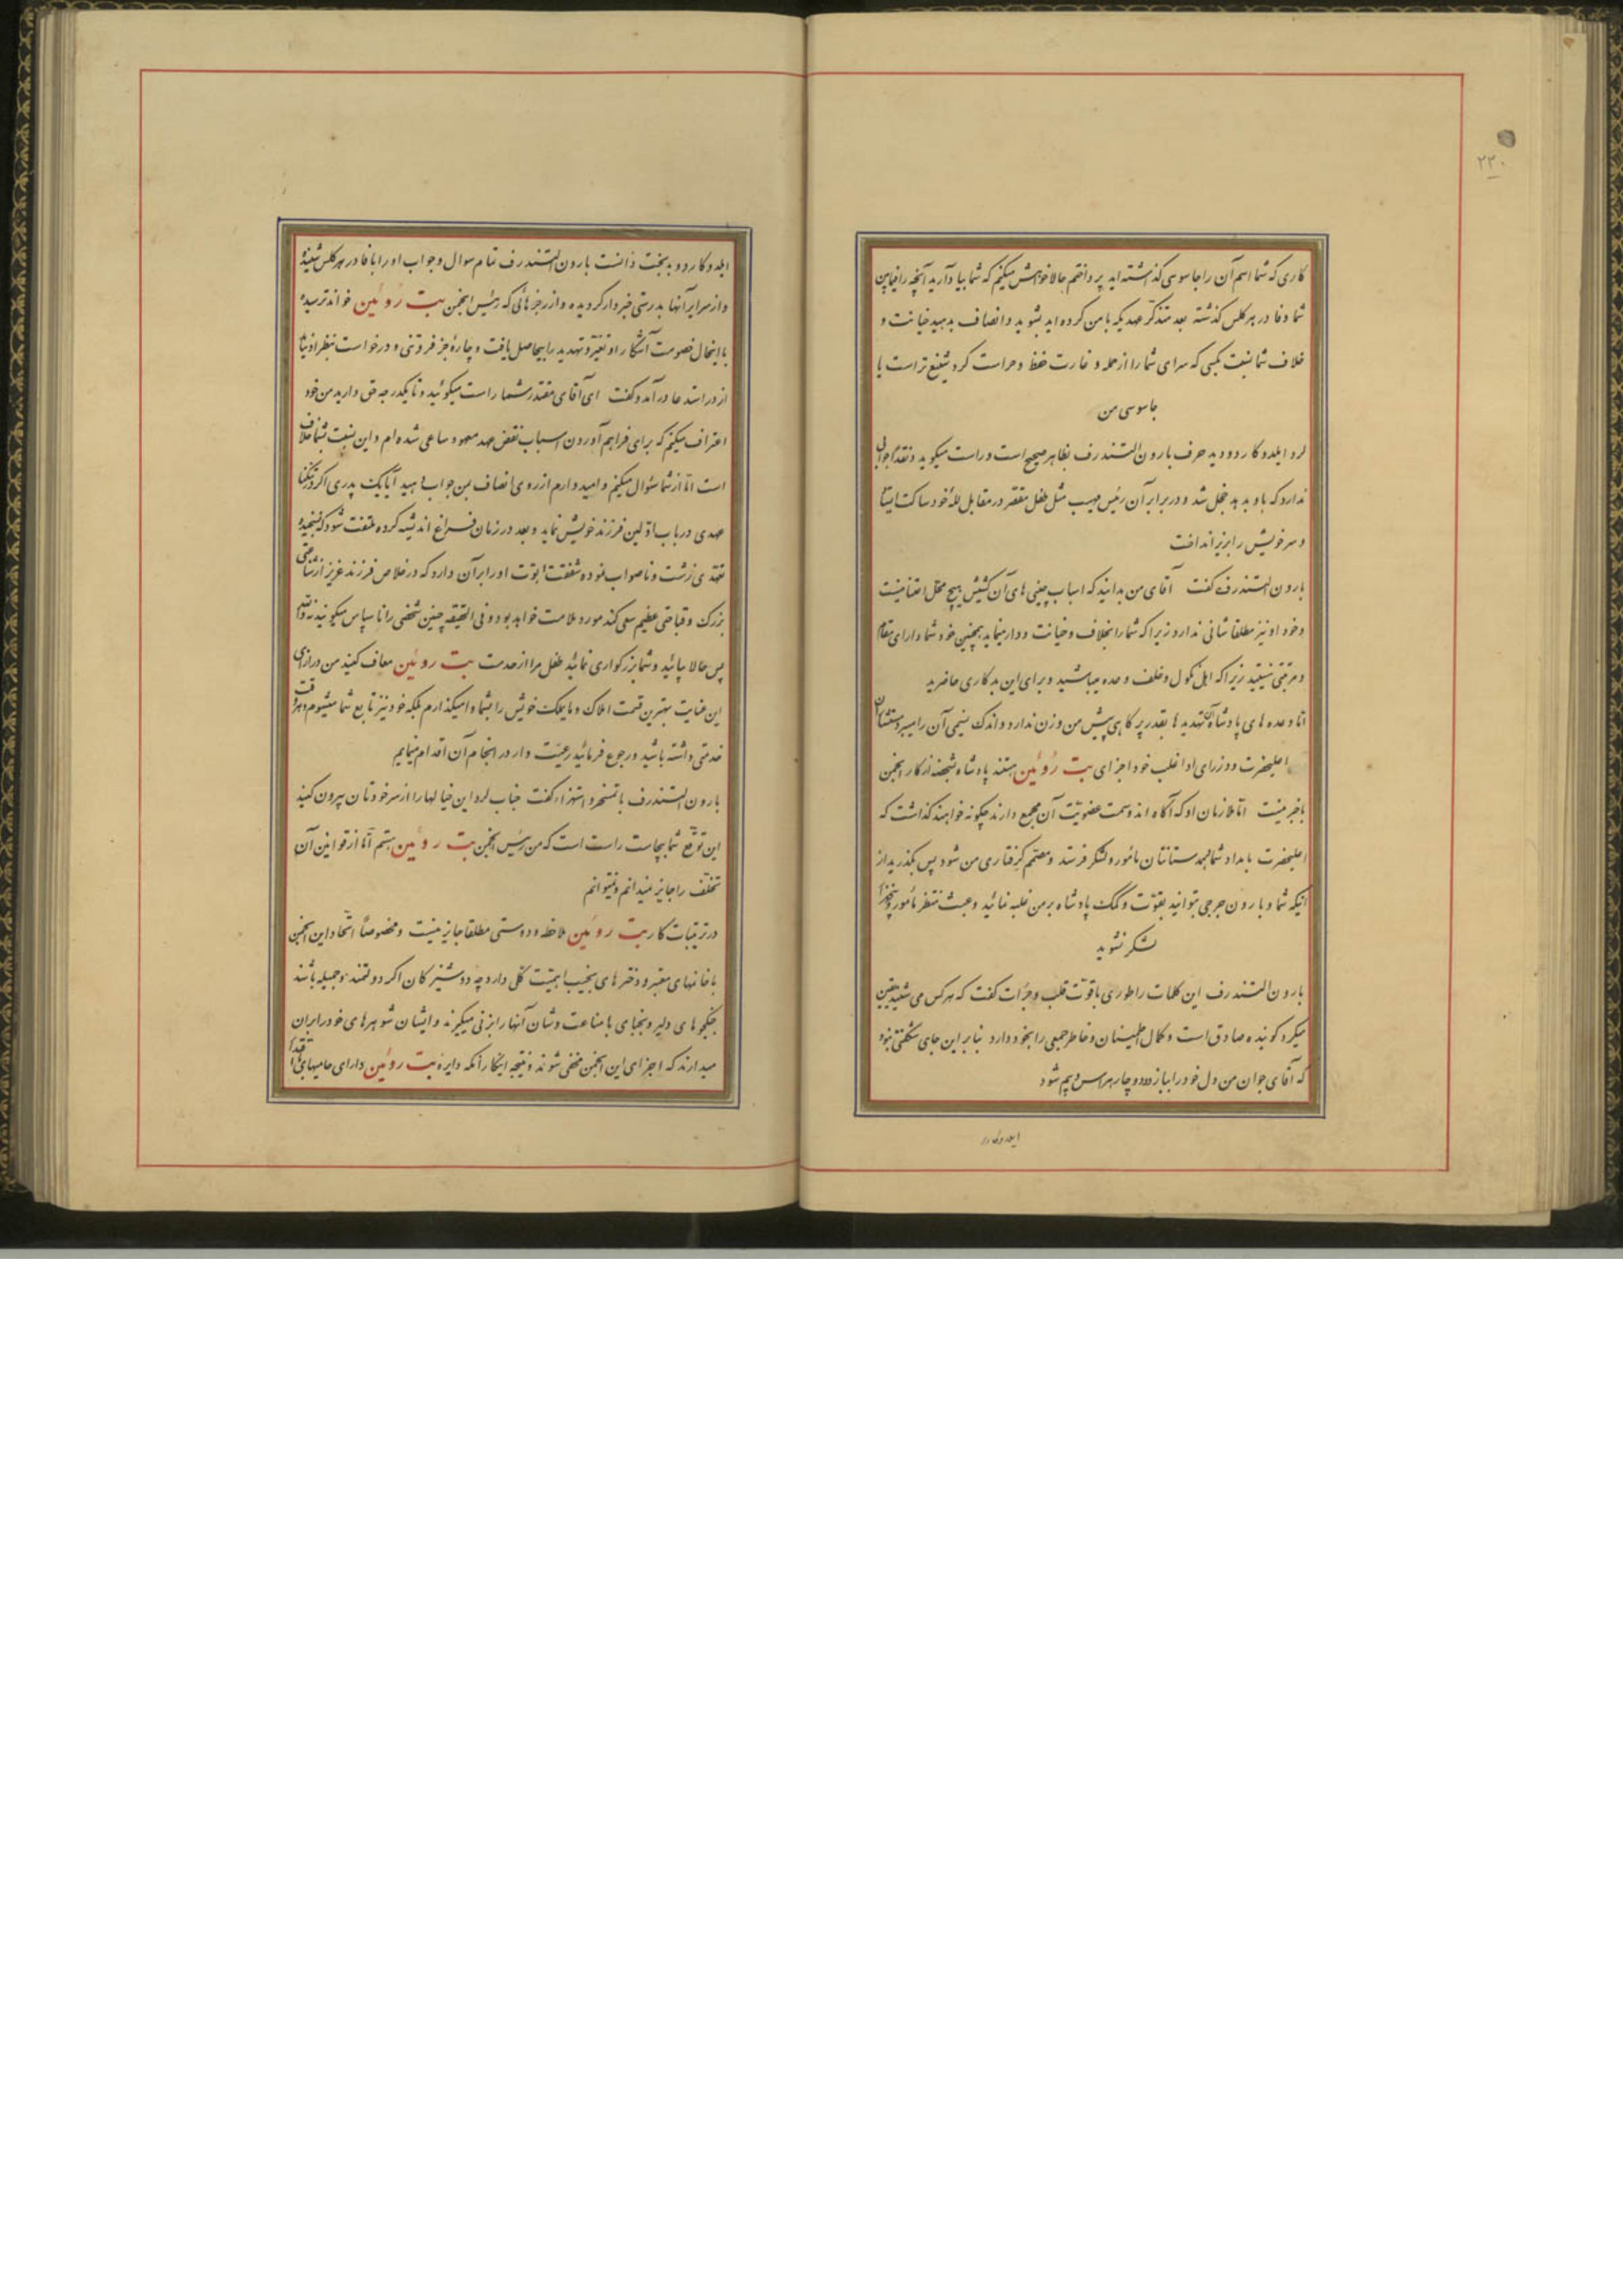 ۲۲۰
کاری که شما اسم آن را جاسوسی گذاشته اید پرداختم حالا خواهش میکنم که شما بیاد آرید آنچه را فیمابین
شما و فادر بهرکلس گذشته بعد متذکر عهدیکه با من کرده اید بشوید و انصاف بدهید خیانت و
خلاف شما نسبت بکسی که سرای شما را از حمله و غارت حفظ و حراست کرد شنیع تر است یا
جاسوسی من
لرد ایلدوکاردو دید حرف بارون الستندرف بظاهر صحیح است و راست میکوید و نقداً جوابی
ندارد که باو بدهد خجل شد و در برابر آن رئیس مهیب مثل طفل مقصر در مقابل لله خود ساکت ایستاد
و سر خویش را بزیر انداخت
بارون الستندرف گفت آقای من بدانید که اسباب چینی های آن کشیش هیچ محل اعتنا نیست
و خود او نیز مطلقا شانی ندارد زیرا که شما را بخلاف و خیانت وادار مینماید همچنین خود شما دارای مقام
و مرتبتی نیستید زیرا که اهل نکول و خلف وعده میباشید و برای این بدکاری حاضرید
اما وعده های پادشاه و آن تهدیدها بقدر پر کاهی پیش من وزن ندارد و اندک نسیمی آن را میبرد
اعلیحضرت و وزرای او اغلب خود اجزای بیت روئین هستند پادشاه شخصه از کار انجمن
باخبر نیست اما ملازمان او که آگاه اند و سمت عضویت آن مجمع دارند چگونه خواهند گذاشت که
اعلیحضرت بامداد شما لهستانتان مأمور و لشکر فرستد و مصمم گرفتاری من شود پس بگذرید از
آنیکه شما و بارون جرجی بتوانید بقوت و کمک پادشاه بر من غلبه نمائید و عبث منتظر مأمور و
لشکر نشوید
بارون الستندرف این کلمات را طوری با قوت قلب و جرأت گفت که هر کس می شنید یقین
میکرد گوینده صادق است و کمال اطمینان و خاطر جمعی را بخود دارد بنابراین جای شگفتی نبود
که آقای جوان من دل خود را ببازد و دوچار هراس و بیم شود
ایلدوکاردو
ایلدوکاردو بدبخت دانست بارون الستندرف تمام سوال و جواب او را با فادر بهرکلس شنیده
و از سرایر آنها بدرستی خبردار گردیده و از رجزهائی که رئیس انجمن بیت روئین خواند ترسیده
با اینحال خصومت آشکار او تغیر و تهدید را بیحاصل یافت و چاره جز فروتنی و درخواست بنظر او نیامد
از در استدعا در آمد و گفت ای آقای مقتدر شما راست میگوئید و تا یکدرجه حق دارید من خود
اعتراف میکنم که برای فراهم آوردن اسباب نقض عهد معهود ساعی شده ام و این نسبت بشما خلاف
است اما از شما سئوال میکنم و امیدوارم از روی انصاف بمن جواب دهید آیا یک پدری اگر در تنگنا
عهدی در باب اولین فرزند خویش نماید و بعد در زمان فراغ اندیشه کرده ملتفت شود که نسنجیده
تعهدی زشت و ناصواب نموده شفقت ابوت او را بر آن دارد که در خلاص فرزند عزیز از شناعتی
بزرگ و قباحتی عظیم سعی کند مورد ملامت خواهد بود و فی الحقیقه چنین شخصی را ناسپاس میگویند نه والله
پس حالا بیائید و شما بزرگواری نمائید طفل مرا از خدمت بیت روئین معاف کنید من در ازای
این عنایت بهترین قسمت املاک و مایملک خویش را بشما وامیگذارم بلکه خود نیز تابع شما میشوم و هر وقت
خدمتی داشته باشید و رجوع فرمائید رعیت وار در انجام آن اقدام مینمایم
بارون الستندرف با تمسخر و استهزاء گفت جناب لرد این خیالها را از سر خودتان بیرون کنید
این توقع شما بیجاست راست است که من رئیس انجمن بیت روئین هستم اما از قوانین آن
تخلف را جایز نمیدانم و نمیتوانم
در ترتیبات کار بیت روئین ملاحظه و دوستی مطلقا جایز نیست و مخصوصاً اتحاد این انجمن
با خانمهای معتبر و دخترهای نجیب اهمیت کلی دارد چه دوشیزگان اگر دولتمند و جمیله باشند
جنگجوهای دلیر و نجبای با مناعت و شان آنها را بزنی میگیرند و ایشان شوهرهای خود را بر آن
میدارند که اجزای این انجمن مخفی شوند و نتیجه اینکار آنکه دایره بیت روئین دارای حامیهای